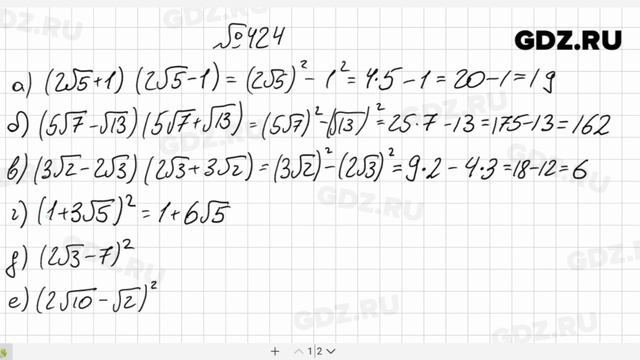 №424
GDZ.RU
а) (2√5+1) (2√5-1) = (2√5)² - 1² = 4·5 - 1 = 20-1 = 19
б) (5√7-√13) (5√7+√13) = (5√7)² - (√13)² = 25·7 - 13 = 175-13 = 162
в) (3√2-2√3) (2√3+3√2) = (3√2)² - (2√3)² = 9·2 - 4·3 = 18-12 = 6
г) (1+3√5)² = 1+6√5
д) (2√3-7)²
е) (2√10-√2)²
GDZ.RU
1|2